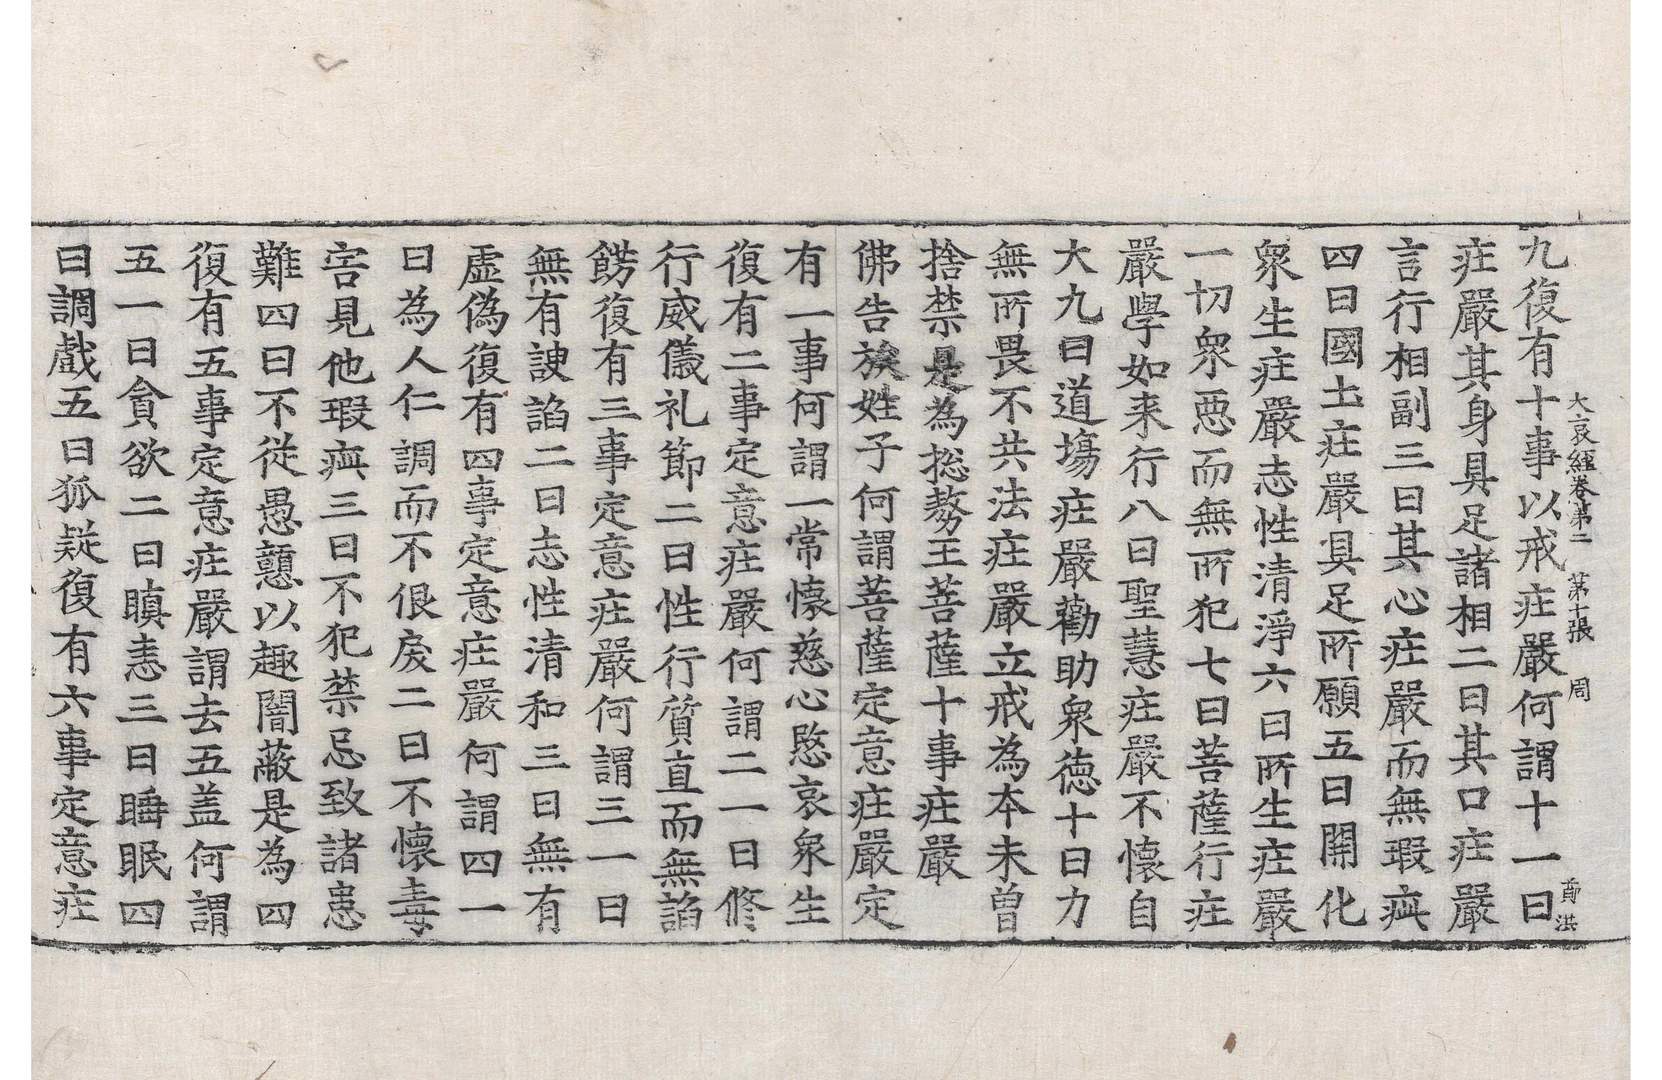 大哀經卷第二　第十張　周
九復有十事以戒庄嚴何謂十一曰
庄嚴其身具足諸相二曰其口庄嚴
言行相副三曰其心庄嚴而無瑕疵
四曰國土庄嚴具足所願五曰開化
衆生庄嚴志性清淨六曰所生庄嚴
一切衆惡而無所犯七曰菩薩行庄
嚴學如来行八曰聖慧庄嚴不懷自
大九曰道場庄嚴勸助衆德十曰力
無所畏不共法庄嚴立戒為本未曾
捨禁是為揔𠢕王菩薩十事庄嚴
佛告族姓子何謂菩薩定意庄嚴定
有一事何謂一常懷慈心愍哀衆生
復有二事定意庄嚴何謂二一曰修
行威儀礼節二曰性行質直而無諂
飾復有三事定意庄嚴何謂三一曰
無有諛諂二曰志性清和三曰無有
虛偽復有四事定意庄嚴何謂四一
曰為人仁調而不佷戾二曰不懷毒
害見他瑕疵三曰不犯禁忌致諸恚
難四曰不從愚戇以趣闇蔽是為四
復有五事定意庄嚴謂去五盖何謂
五一曰貪欲二曰瞋恚三曰睡眠四
曰調戲五曰狐疑復有六事定意庄